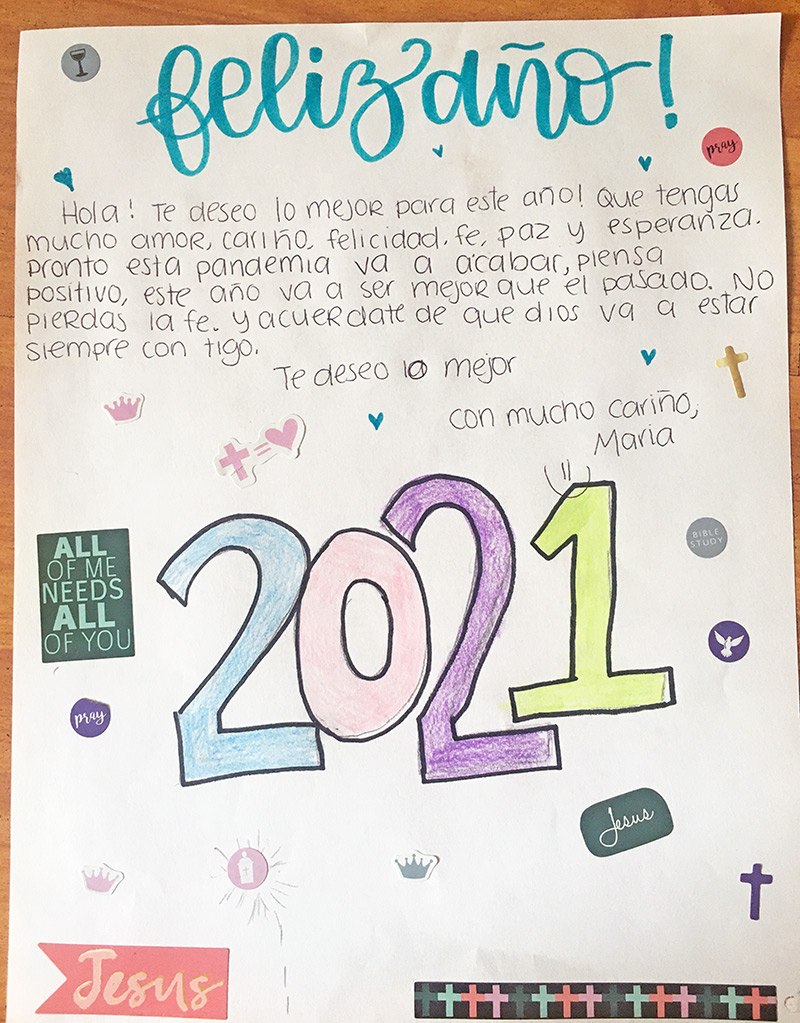 feliz año!
pray
Hola! Te deseo lo mejor para este año! Que tengas
mucho amor, cariño, felicidad, fe, paz y esperanza.
Pronto esta pandemia va a acabar, piensa
positivo, este año va a ser mejor que el pasado. No
pierdas la fe. y acuerdate de que dios va a estar
siempre con tigo.
Te deseo lo mejor
con mucho cariño,
Maria
2021
BIBLE
STUDY
ALL
OF ME
NEEDS
ALL
OF YOU
pray
Jesus
Jesus